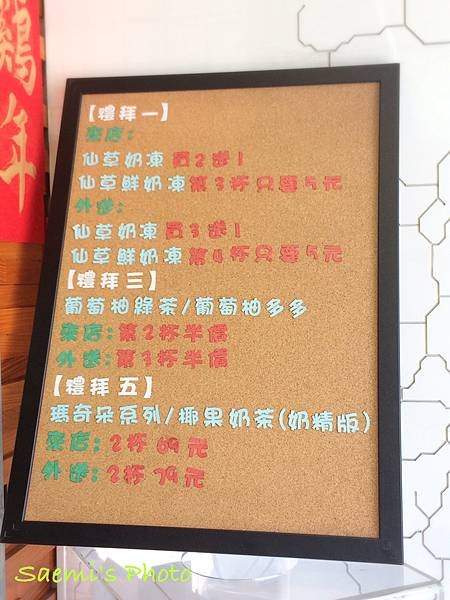 雞年
【禮拜一】
來店:
仙草奶凍買2送1
仙草鮮奶凍第3杯只要5元
外送:
仙草奶凍買3送1
仙草鮮奶凍第4杯只要5元
【禮拜三】
葡萄柚綠茶/葡萄柚多多
來店:第2杯半價
外送:第3杯半價
【禮拜五】
瑪奇朵系列/椰果奶茶(奶精版)
來店:2杯69元
外送:2杯79元
Saemi's Photo